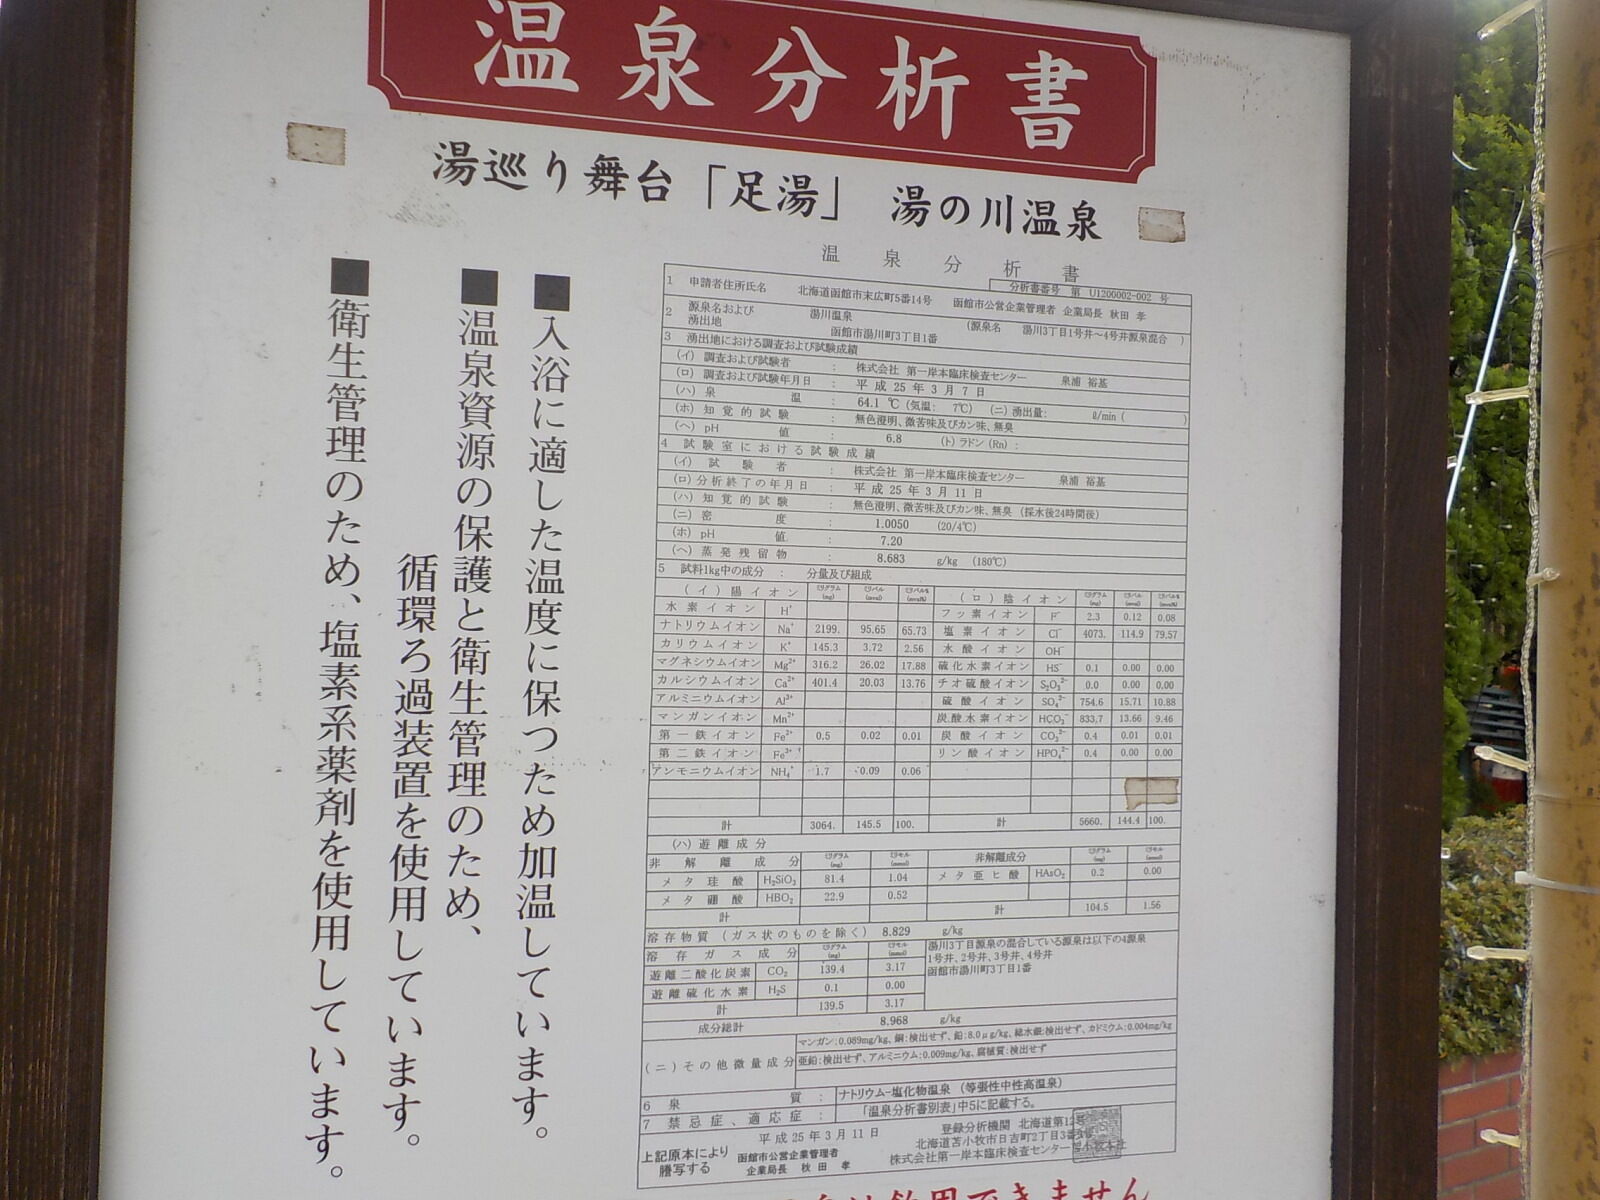 温泉分析書
湯巡り舞台「足湯」 湯の川温泉
■入浴に適した温度に保つため加温しています。
■温泉資源の保護と衛生管理のため、
循環ろ過装置を使用しています。
■衛生管理のため、塩素系薬剤を使用しています。
温泉分析書
分析書番号 第 U1200002-002 号
1 申請者住所氏名 北海道函館市末広町5番14号 函館市公営企業管理者 企業局長 秋田 孝
2 源泉名および湧出地 湯川温泉 (源泉名 湯川3丁目1号井～4号井源泉混合 )
函館市湯川町3丁目1番
3 湧出地における調査および試験成績
(イ) 調査および試験者 : 株式会社 第一岸本臨床検査センター 泉浦 裕基
(ロ) 調査および試験年月日 : 平成 25 年 3 月 7 日
(ハ) 泉温 : 64.1 ℃ (気温: 7℃) (ニ) 湧出量: ℓ/min ( )
(ホ) 知覚的試験 : 無色澄明、微苦味及びカン味、無臭
(ヘ) pH値 : 6.8 (ト) ラドン (Rn) :
4 試験室における試験成績
(イ) 試験者 : 株式会社 第一岸本臨床検査センター 泉浦 裕基
(ロ) 分析終了の年月日 : 平成 25 年 3 月 11 日
(ハ) 知覚的試験 : 無色澄明、微苦味及びカン味、無臭 (採水後24時間後)
(ニ) 密度 : 1.0050 (20/4℃)
(ホ) pH値 : 7.20
(ヘ) 蒸発残留物 : 8.683 g/kg (180℃)
5 試料1kg中の成分 : 分量及び組成
(イ) 陽イオン ミリグラム(mg) ミリバル(mval) ミリバル%(mval%) (ロ) 陰イオン ミリグラム(mg) ミリバル(mval) ミリバル%(mval%)
水素イオン H⁺ フッ素イオン F⁻ 2.3 0.12 0.08
ナトリウムイオン Na⁺ 2199. 95.65 65.73 塩素イオン Cl⁻ 4073. 114.9 79.57
カリウムイオン K⁺ 145.3 3.72 2.56 水酸イオン OH⁻
マグネシウムイオン Mg²⁺ 316.2 26.02 17.88 硫化水素イオン HS⁻ 0.1 0.00 0.00
カルシウムイオン Ca²⁺ 401.4 20.03 13.76 チオ硫酸イオン S₂O₃²⁻ 0.0 0.00 0.00
アルミニウムイオン Al³⁺ 硫酸イオン SO₄²⁻ 754.6 15.71 10.88
マンガンイオン Mn²⁺ 炭酸水素イオン HCO₃⁻ 833.7 13.66 9.46
第一鉄イオン Fe²⁺ 0.5 0.02 0.01 炭酸イオン CO₃²⁻ 0.4 0.01 0.01
第二鉄イオン Fe³⁺ リン酸イオン HPO₄²⁻ 0.4 0.00 0.00
アンモニウムイオン NH₄⁺ 1.7 0.09 0.06
計 3064. 145.5 100. 計 5660. 144.4 100.
(ハ) 遊離成分
非解離成分 ミリグラム(mg) ミリモル(mmol) 非解離成分 ミリグラム(mg) ミリモル(mmol)
メタ珪酸 H₂SiO₃ 81.4 1.04 メタ亜ヒ酸 HAsO₂ 0.2 0.00
メタ硼酸 HBO₂ 22.9 0.52
計 計 104.5 1.56
溶存物質 (ガス状のものを除く) 8.829 g/kg
溶存ガス成分 ミリグラム(mg) ミリモル(mmol)
遊離二酸化炭素 CO₂ 139.4 3.17
遊離硫化水素 H₂S 0.1 0.00
計 139.5 3.17
湯川3丁目源泉の混合している源泉は以下の4源泉
1号井、2号井、3号井、4号井
函館市湯川町3丁目1番
成分総計 8.968 g/kg
(ニ) その他微量成分 マンガン:0.089mg/kg、銅:検出せず、鉛:8.0μg/kg、総水銀:検出せず、カドミウム:0.004mg/kg
亜鉛:検出せず、アルミニウム:0.009mg/kg、腐植質:検出せず
6 泉質 : ナトリウム-塩化物温泉 (等張性中性高温泉)
7 禁忌症、適応症 : 「温泉分析書別表」中5に記載する。
平成 25 年 3 月 11 日
登録分析機関 北海道第
北海道苫小牧市日吉町2丁目3番
株式会社第一岸本臨床検査センター
上記原本により謄写する
函館市公営企業管理者
企業局長 秋田 孝
飲用できません